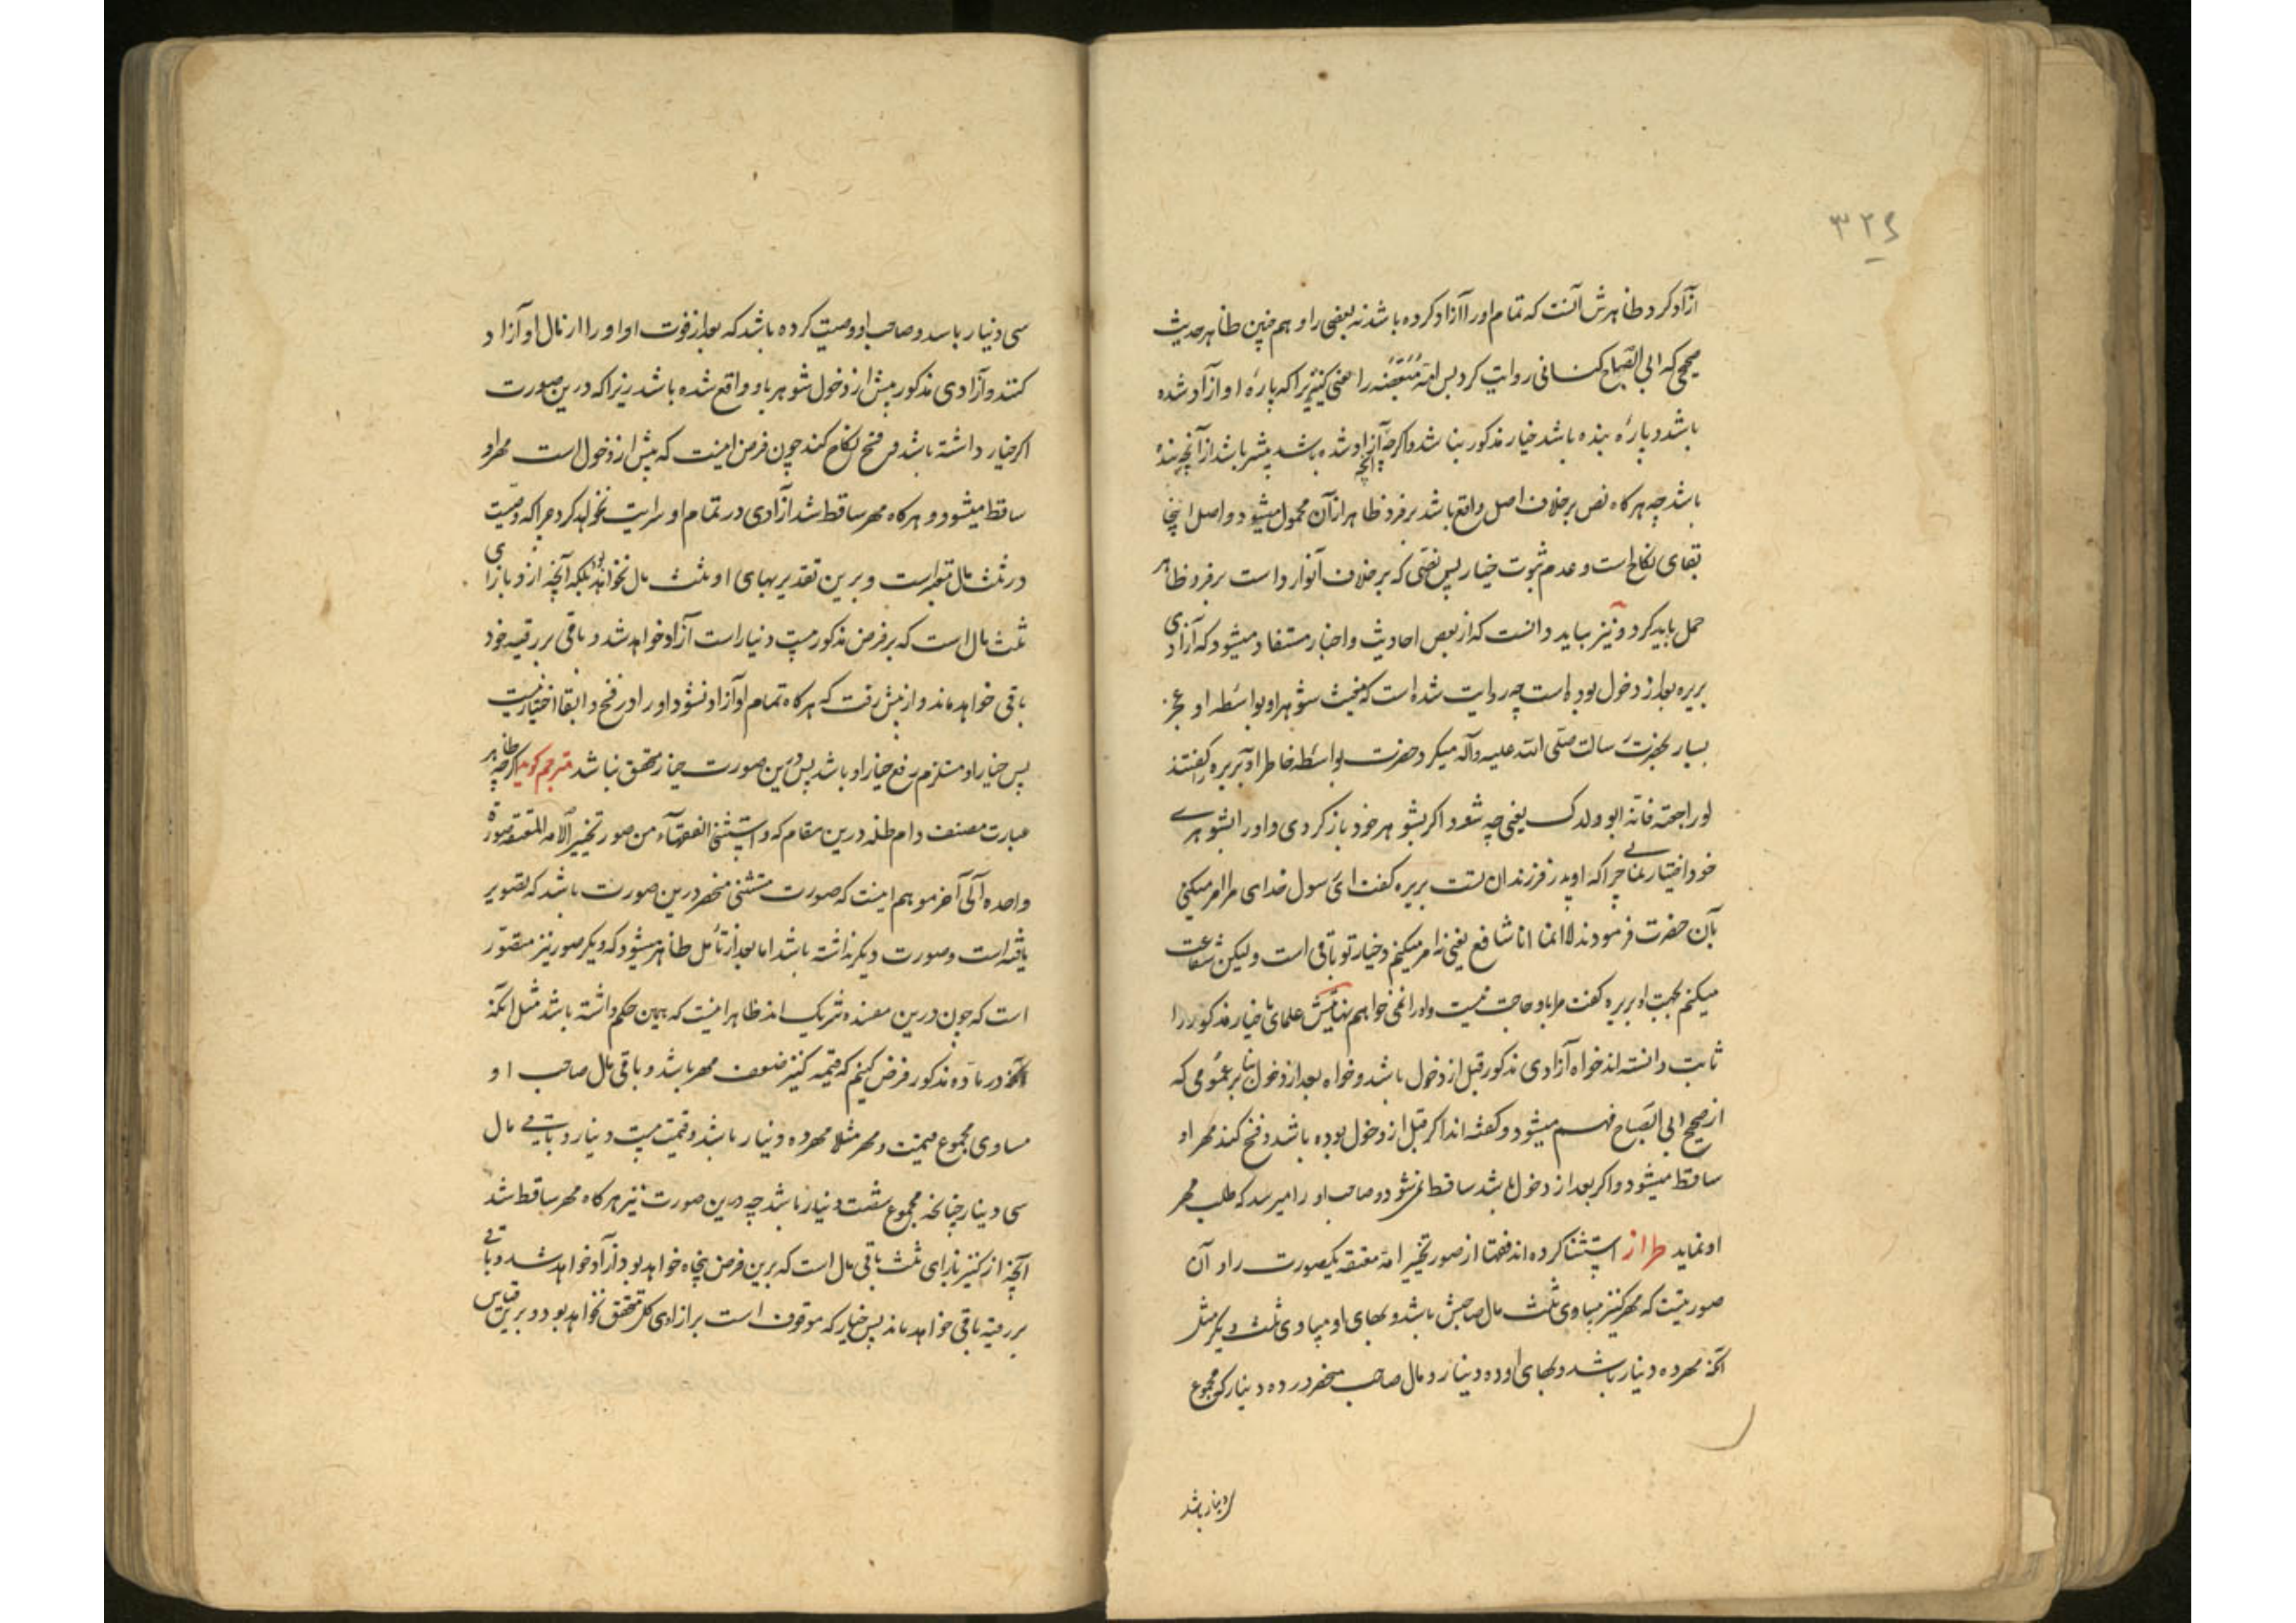 ۳۲۶
آزاد کرد ظاهرش آنست که تمام او را آزاد کرده باشد نه بعضی را و هم چنین ظاهر حدیث
صحیحی که ابی الصباح کنانی روایت کرد پس امة متبعضه را یعنی کنیزیرا که پارهٔ او آزاد شده
باشد و پارهٔ بنده باشد خیار مذکور نباشد و اگرچه آنچه آزاد شده باشد بیشتر باشد از آنچه بندهٔ
باشد چه هر گاه نص بر خلاف اصل واقع باشد بر فرد ظاهر از آن محمول میشود و اصل اینجا
بقای نکاح است و عدم ثبوت خیار پس نصی که بر خلاف آن وارد است بر فرد ظاهر
حمل باید کرد و نیز بباید دانست که از بعض احادیث و اخبار مستفاد میشود که آزادی
بریره بعد از دخول بوده است چه روایت شده است که مغیث شوهر او بواسطه او عجز
بسیار بحضرت رسالت صلی الله علیه و آله میکرد و حضرت بواسطه خاطر او ببریره گفتند
لو راجعته فانه ابو ولدک یعنی چه شود اگر بشوهر خود باز گردی و او را بشوهری
خود اختیار نمائی چرا که او پدر فرزندان تست بریره گفت ای رسول خدای مرا امر میکنی
بآن حضرت فرمودند لا انما انا شافع یعنی نه امر میکنم و خیار تو باقی است و لیکن شفاعت
میکنم بجهت او بریره گفت مرا باو حاجت نیست و او را نمی خواهم علمای ما خیار مذکور را
ثابت دانسته اند خواه آزادی مذکور قبل از دخول باشد و خواه بعد از دخول بنا بر عمومی که
از صحیح ابی الصباح فهم میشود و گفته اند اگر قبل از دخول بوده باشد و فسخ کند مهر او
ساقط میشود و اگر بعد از دخول باشد ساقط نمیشود و صاحب او را میرسد که طلب مهر
او نماید طراز استثنا کرده اند فقها از صور تخییر امة معتقه یکصورت را و آن
صورتیست که مهر کنیز مساوی ثلث مال صاحبش باشد و بهای او مساوی ثلث دیگر مثل
آنکه مهر ده دینار باشد و بهای او ده دینار و مال صاحب منحصر در ده دینار که مجموع
دینار باشد
سی دینار باشد و صاحب او وصیت کرده باشد که بعد از فوت او او را از مال او آزاد
کنند و آزادی مذکور پیش از دخول شوهر باو واقع شده باشد زیرا که درین صورت
اگر خیار داشته باشد و فسخ نکاح کند چون فرض اینست که پیش از دخول است مهر او
ساقط میشود و هر گاه مهر ساقط شد آزادی در تمام او سرایت نخواهد کرد چرا که وصیت
در ثلث مال معتبر است و برین تقدیر بهای او ثلث مال نخواهد بود بلکه آنچه ازو بازای
ثلث مال است که بر فرض مذکور بیست دینار است آزاد خواهد شد و باقی بر رقیه خود
باقی خواهد ماند و از پیش رفت که هر گاه تمام او آزاد نشود او را در فسخ و ابقا اختیار نیست
پس خیار او مستلزم رفع خیار او باشد پس درین صورت خیار متحقق نباشد مترجم گوید اگرچه ظاهر
عبارت مصنف دام ظله درین مقام که و استثنی الفقهاء من صور تخییر الامه المعتقه صورة
واحده الی آخر موهم اینست که صورت مستثنی منحصر درین صورت باشد که تصویر
یافته است و صورت دیگر نداشته باشد اما بعد از تأمل ظاهر میشود که دیگر صور نیز متصوّر
است که چون درین مفسده شریک اند ظاهر اینست که همین حکم داشته باشد مثل آنکه
در ماده مذکور فرض کنیم که قیمه کنیز ضعف مهر باشد و باقی مال صاحب او
مساوی مجموع قیمت و مهر مثلا مهر ده دینار باشد و قیمت بیست دینار و باقی مال
سی دینار چنانچه مجموع شصت دینار باشد چه درین صورت نیز هر گاه مهر ساقط شد
آنچه از کنیز بازای ثلث باقی مال است که برین فرض پنجاه خواهد بود آزاد خواهد شد و باقی
بر رقیه باقی خواهد ماند پس خیار که موقوف است بر آزادی کل متحقق نخواهد بود و برین قیاس